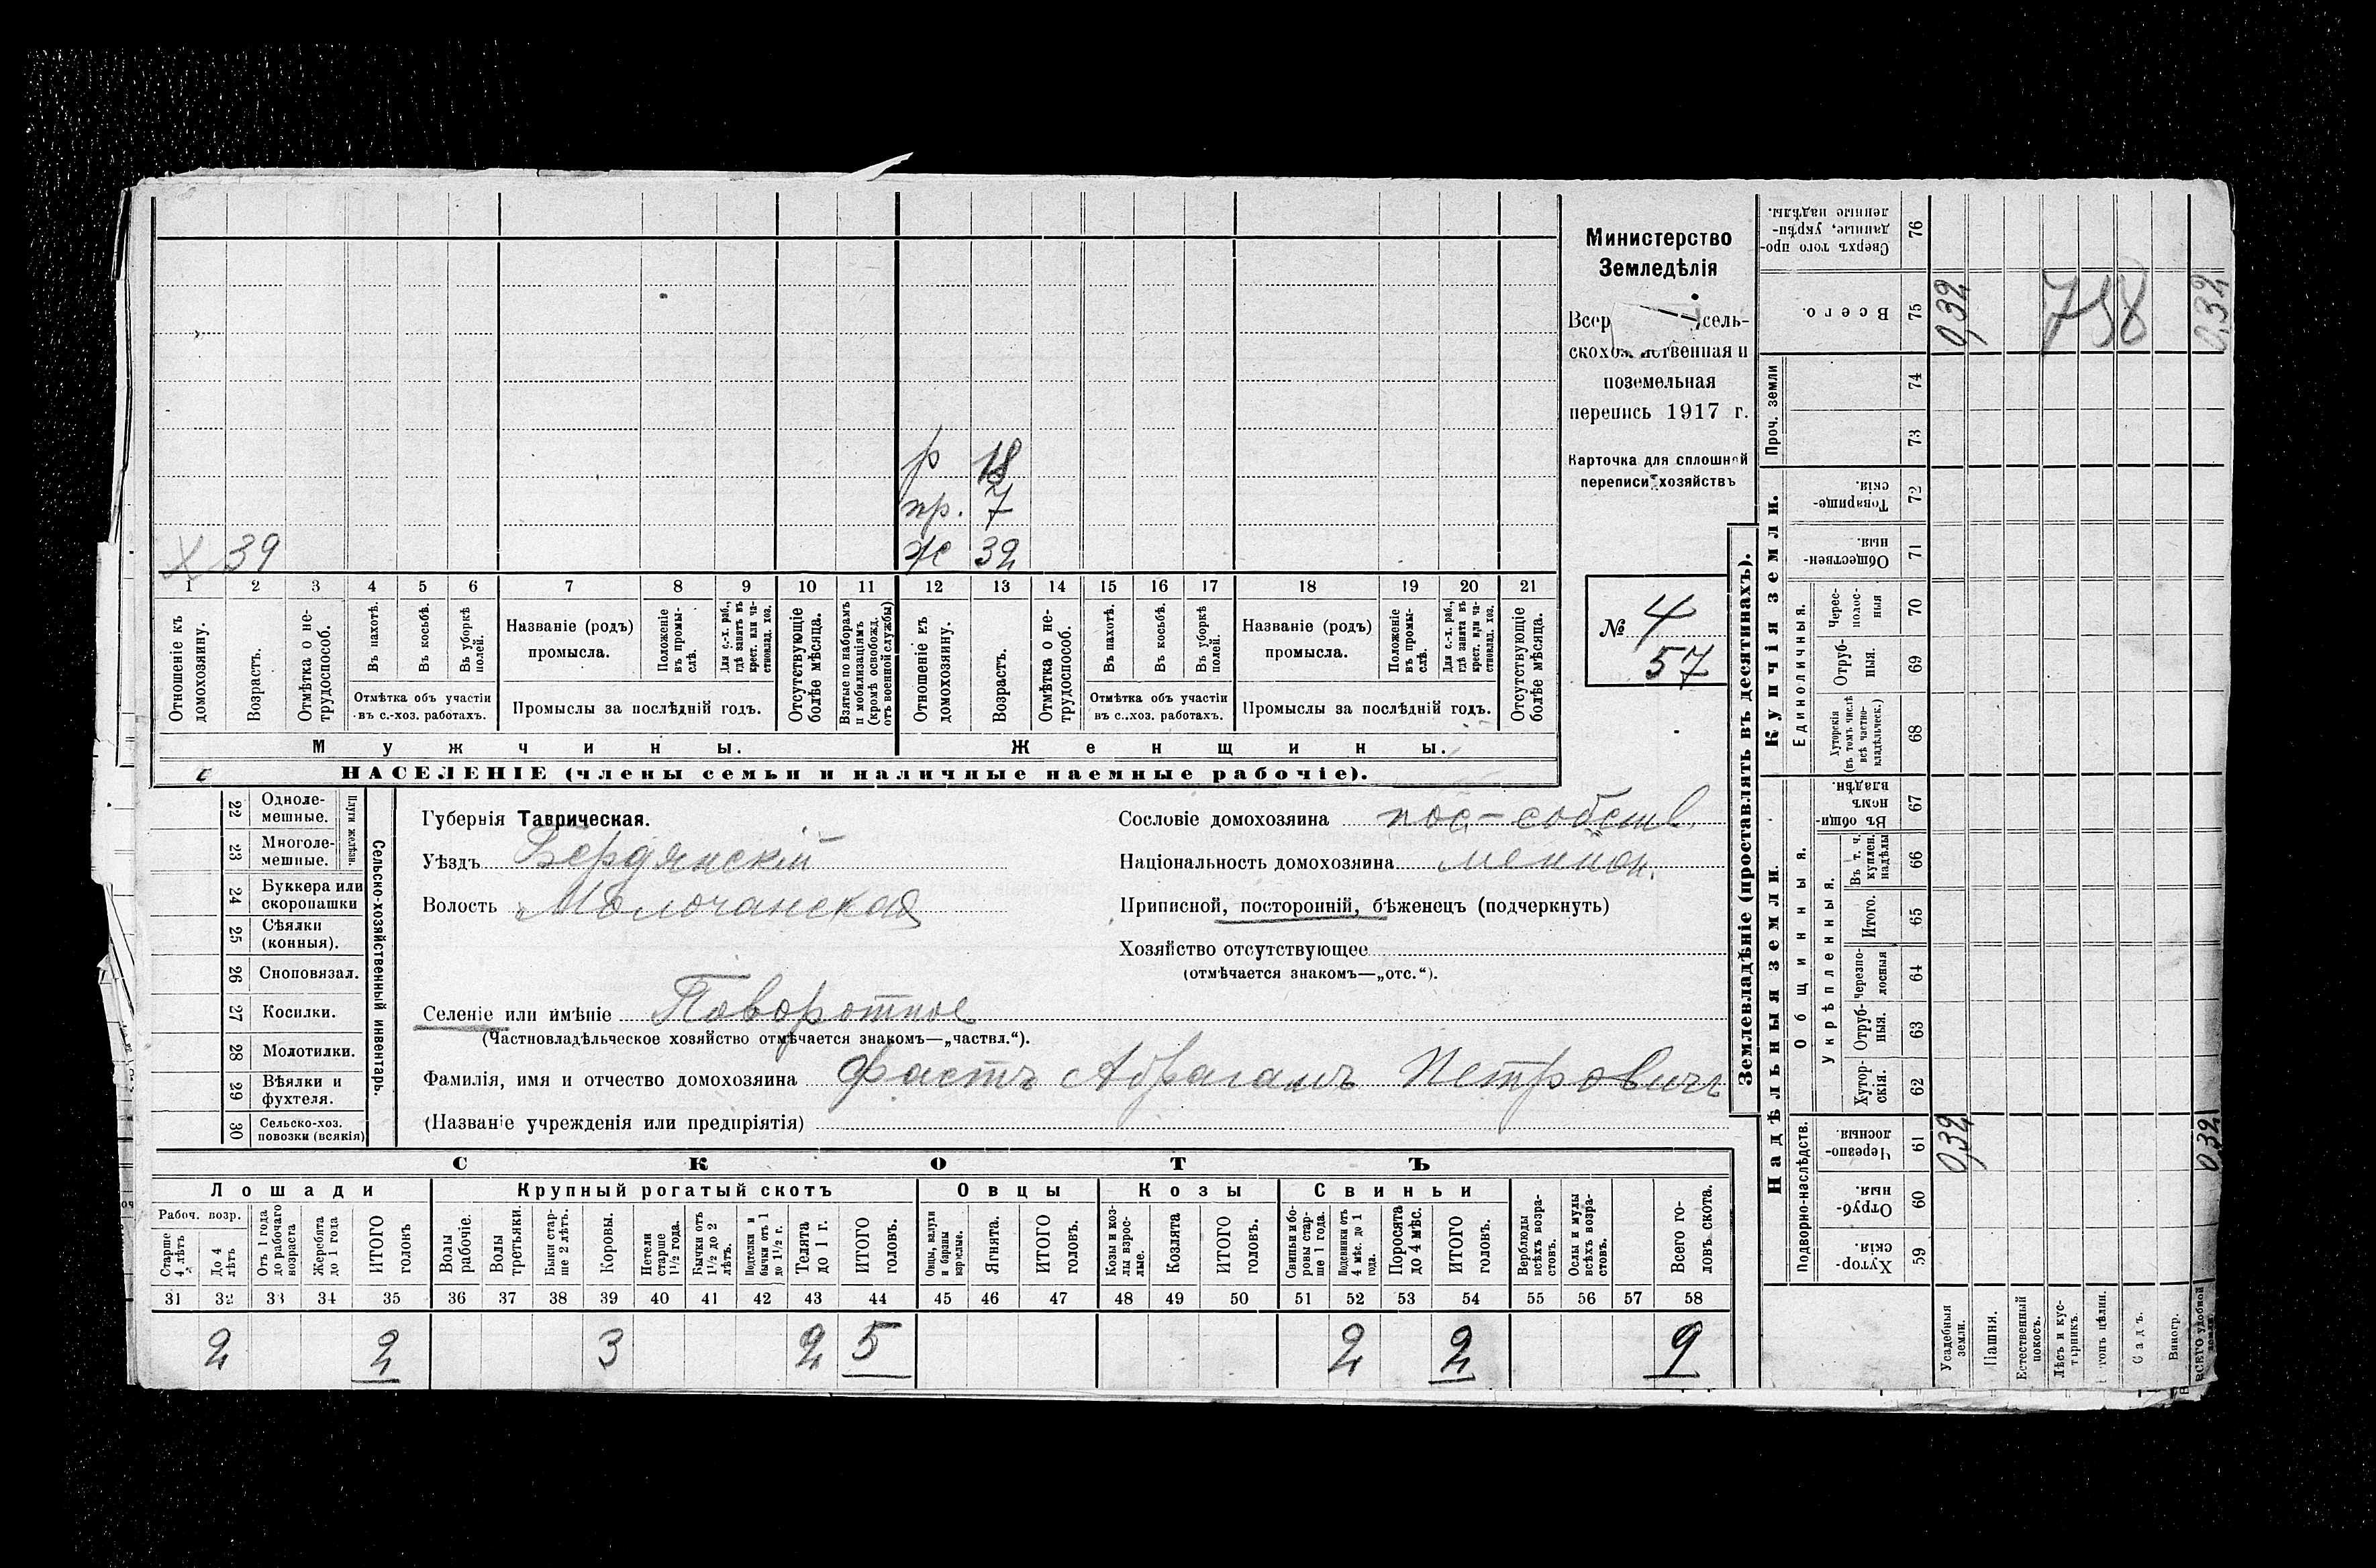 р 18
пр. 7
х 39 ж 32
1 2 3 4 5 6 7 8 9 10 11 12 13 14 15 16 17 18 19 20 21
Отношеніе къ домохозяину.
Возрастъ.
Отмѣтка о не-трудоспособ.
Въ пахотѣ.
Въ косьбѣ.
Въ уборкѣ полей.
Отмѣтка объ участіи
въ с.-хоз. работахъ.
Названіе (родъ)
промысла.
Положеніе въ промы-слѣ.
Для с.-х. раб., гдѣ занятъ въ крест. или ча-стновлад. хоз.
Промыслы за послѣдній годъ.
Отсутствующіе болѣе мѣсяца.
Взятые по наборамъ и мобилизаціямъ (кромѣ освобожд. отъ военной службы)
Отношеніе къ домохозяину.
Возрастъ.
Отмѣтка о не-трудоспособ.
Въ пахотѣ.
Въ косьбѣ.
Въ уборкѣ полей.
Отмѣтка объ участіи
въ с.-хоз. работахъ.
Названіе (родъ)
промысла.
Положеніе въ промы-слѣ.
Для с.-х. раб., гдѣ занята въ крест. или ча-стновлад. хоз.
Промыслы за послѣдній годъ.
Отсутствующіе болѣе мѣсяца.
Мужчины. Женщины.
НАСЕЛЕНІЕ (члены семьи и наличные наемные рабочіе).
Министерство
Земледѣлія
Всер сель-
скохоз ственная и
поземельная
перепись 1917 г.
Карточка для сплошной
переписи хозяйствъ
№ 4
57
22 Одноле-мешные.
23 Многоле-мешные.
Плуги желѣзн.
24 Буккера или скоропашки
25 Сѣялки (конныя).
26 Сноповязал.
27 Косилки.
28 Молотилки.
29 Вѣялки и фухтеля.
30 Сельско-хоз. повозки (всякія)
Сельско-хозяйственный инвентарь.
Губернія Таврическая.
Уѣздъ Бердянскій
Волость Молочанская
Селеніе или имѣніе Поворотное
(Частновладѣльческое хозяйство отмѣчается знакомъ—„частвл.“).
Фамилія, имя и отчество домохозяина Фастъ Абрагамъ Петровичъ
(Названіе учрежденія или предпріятія)
Сословіе домохозяина пос.-собств.
Національность домохозяина меннон.
Приписной, посторонній, бѣженецъ (подчеркнуть)
Хозяйство отсутствующее
(отмѣчается знакомъ—„отс.“).
СКОТЪ
Лошади Крупный рогатый скотъ Овцы Козы Свиньи
Рабоч. возр.
Старше 4 лѣтъ
До 4 лѣтъ
Отъ 1 года до рабочаго возраста
Жеребята до 1 года
ИТОГО головъ
Волы рабочіе.
Волы третьяки.
Быки стар-ше 2 лѣтъ.
Коровы.
Нетели старше 1½ года.
Бычки отъ 1½ до 2 лѣтъ.
Подтелки и бычки отъ 1 до 1½ г.
Телята до 1 г.
ИТОГО головъ.
Овцы, валухи и бараны взрослые.
Ягнята.
ИТОГО головъ.
Козы и коз-лы взрос-лые.
Козлята
ИТОГО головъ.
Свиньи и бо-ровы стар-ше 1 года.
Подсвинки отъ 4 мѣс. до 1 года.
Поросята до 4 мѣс.
ИТОГО головъ.
Верблюды всѣхъ возра-стовъ.
Ослы и мулы всѣхъ возра-стовъ.
Всего го-ловъ скота.
31 32 33 34 35 36 37 38 39 40 41 42 43 44 45 46 47 48 49 50 51 52 53 54 55 56 57 58
2 2 3 2 5 2 2 9
Землевладѣніе (проставлять въ десятинахъ).
Купчія земли.
Надѣльныя земли.
Проч. земли
Единоличныя.
Общинныя.
Укрѣпленныя.
Подворно-наслѣдств.
Сверхъ того про-данные, укрѣп-ленные надѣлы. 76
Всего. 75 0,32 0,32
758
74
73
Товарище-скія. 72
Обществен-ныя. 71
Черес-полос-ныя 70
Отруб-ныя. 69
Хуторскія (въ томъ числѣ всѣ частно-владѣльческ.) 68
Въ общи-номъ владѣн. 67
Въ т. ч. куплен. надѣлы 66
Итого. 65
Черезпо-лосныя 64
Отруб-ныя. 63
Хутор-скія. 62
Черезпо-лосныя. 61 0,32 0,32
Отруб-ныя. 60
Хутор-скія. 59
Усадебныя земли.
Пашня.
Естественный покосъ.
Лѣсъ и кус-тарникъ.
Садъ.
Виногр.
ВСЕГО удобной